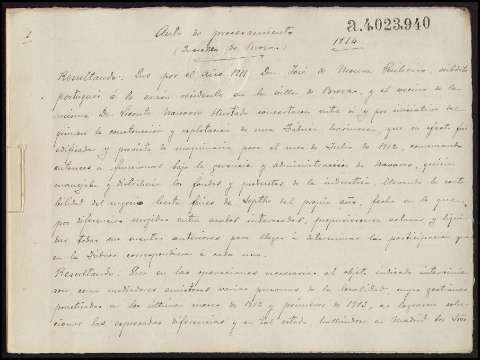 a.4023940
Auto de procesamiento
1914
de Brozas
Resultando: Que por el año 1911 Don José de Moura súbdito
portugués á la sazón residente en la villa de Brozas, y el vecino de la
misma Dn Vicente Navarro Hurtado concertaron entre sí y por iniciativa del
primero la construcción y explotación de una Fábrica harinera, que en efecto fué
edificada y provista de maquinaria para el mes de Julio de 1912, comenzando
entonces á funcionar bajo la gerencia y administración de Navarro, quien
manejaba y distribuía los fondos y productos de la industria, llevando la conta-
bilidad del negocio hasta fines de Septbre del propio año, fecha en la que
por diferencias surgidas entre ambos interesados, aclarar y liqui-
dar todas sus cuentas anteriores para llegar á determinar la participación que
en la Fábrica correspondiera á cada uno.
Resultando: Que en las operaciones necesarias al objeto indicado intervinie-
ron como mediadores amistosos varias personas de la localidad, cuyas gestiones
practicadas en los últimos meses de 1912 y primeros de 1913, no lograron solu-
cionar las expresadas diferencias y en tal estado, hallándose en Madrid los